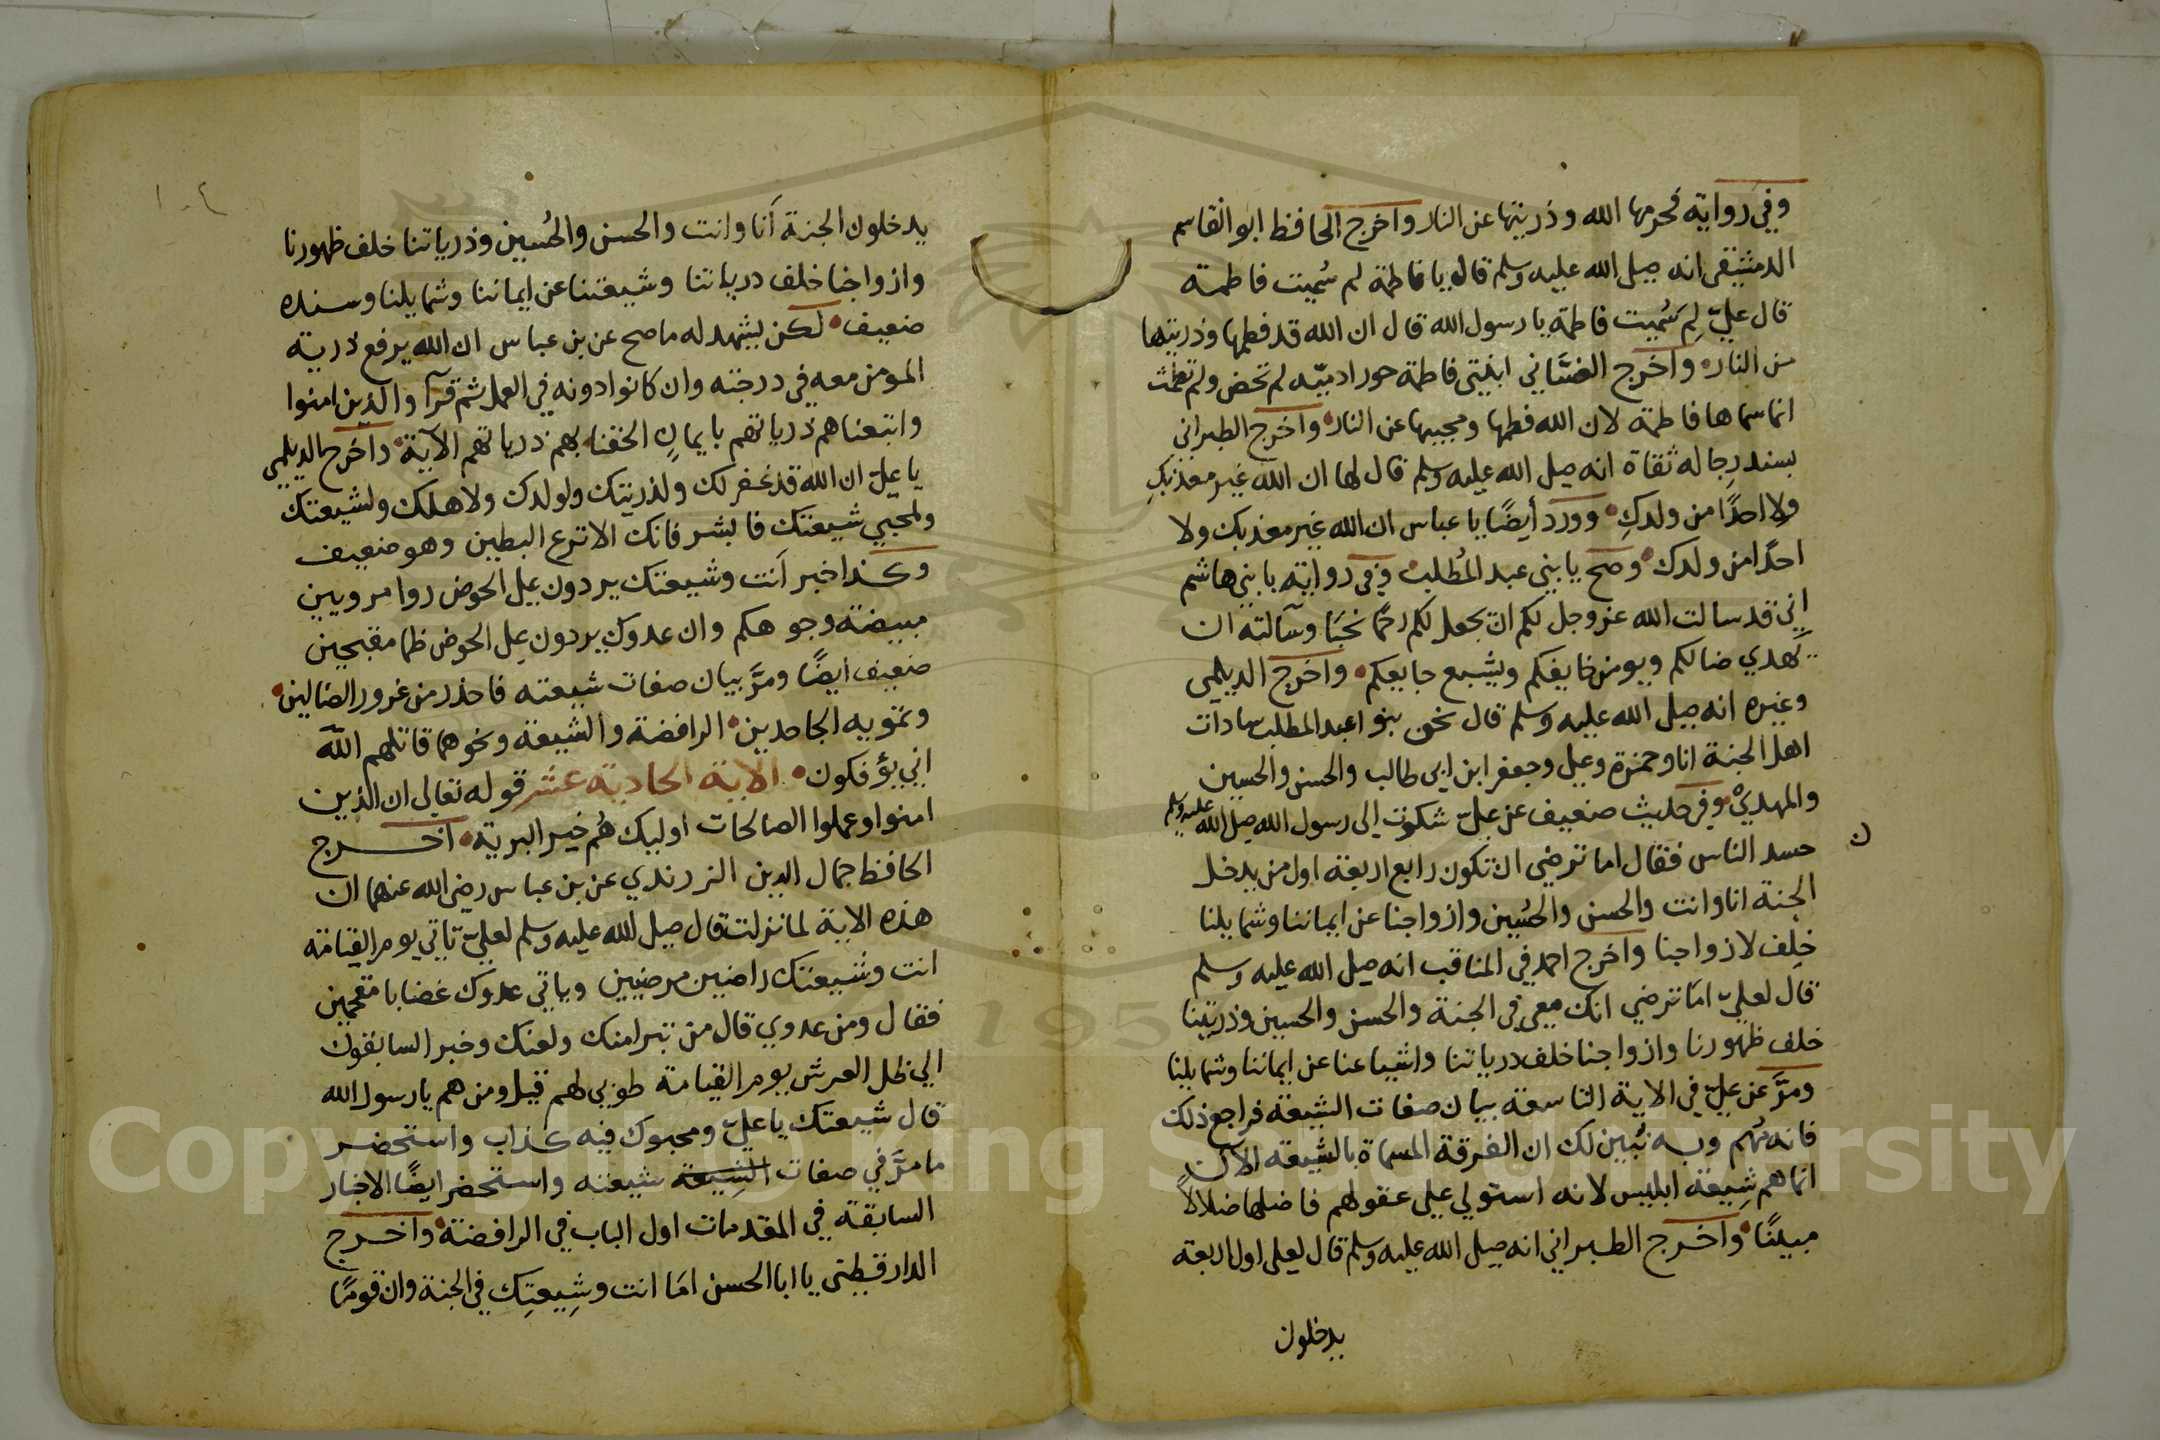 وفي رواية فحرمها الله وذريتها عن النار واخرج الحافظ ابو القاسم
الدمشقي انه صلى الله عليه وسلم قال يا فاطمة لم سُميت فاطمة
قال عليّ لِمَ سُميت فاطمة يا رسول الله قال ان الله قد فطمها وذريتها
من النار واخرج الغسَّاني ابنتي فاطمة حورا ادميّه لم تحض ولم تطمث
انما سماها فاطمة لان الله فطمها ومحبيها عن النار واخرج الطبراني
بسند رجاله ثقاة انه صلى الله عليه وسلم قال لها ان الله غير معذبكِ
ولا احدًا من ولدكِ وورد أيضًا يا عباس ان الله غير معذبك ولا
احدًا من ولدك وصح يا بني عبد المُطلب وفي رواية يا بني هاشم
اني قد سالت الله عز وجل لكم ان يجعلكم رحمًا نجبًا وسآلته ان
يهدي ضالكم ويومن خايفكم ويشبع جايعكم واخرج الديلمي
وغيره انه صلى الله عليه وسلم قال نحن بنوا عبد المطلب سادات
اهل الجنة انا وحمزة وعلي وجعفر ابن ابي طالب والحسن والحسين
والمهديّ وفي حديث ضعيف عن عليّ شكوت إلى رسول الله صلى الله عليه وسلم
حسد الناس فقال اما ترضى ان تكون رابع اربعة اول من يدخل
ن
الجنة انا وانت والحسن والحُسين وازواجنا عن ايماننا وشمايلنا
خلف لازواجنا واخرج احمد في المناقب انه صلى الله عليه وسلم
قال لعليّ امَا ترضي انك معي في الجنة والحسن والحسين وذريتنا
خلف ظهورنا وازواجنا خلف درياتنا واشياعنا عن ايماننا وشمايلنا
ومرَّ عن عليّ في الاية التاسعة بيان صفات الشيعة فراجع ذلك
فانه مُهم وبه تُبين لك ان الفرقة المسماة بالشيعة الآن
انما هم شِيعة ابليس لانه استولي على عقولهم فاضلها ضلالاً
مبينًا واخرج الطبراني انه صلى الله عليه وسلم قال لعلى اول اربعة
يدخلون
١٠٤
يدخلون الجنة أنا وانت والحسن والحُسين وذرياتنا خلف ظهورنا
وازواجنا خلف درياتنا وشيعتنا عن ايماننا وشمايلنا وسنده
ضعيف لكن يشهد له ما صح عن بن عباس ان الله يرفع ذرية
المومن معه في درجته وان كانوا دونه في العمل ثم قرآ والذين امنوا
واتبعناهم ذرياتهم بايمانٍ الحقنا بهم ذرياتهم الآية واخرج الديلمي
يا عليّ ان الله قد غفر لك ولذريتك ولولدك ولاهلك ولشيعتك
ولمحبي شيعتك فابشر فانك الانزع البطين وهو ضعيف
وكذا خبر أنت وشيعتك يردون على الحوض روا مرويين
مبيضة وجوهكم وان عدوك يردون على الحوض ظما مقبحين
ضعيف أيضًا ومرَّ بيان صفات شيعته فاحذر من غرور الضالين
وتمويه الجاحدين الرافضة والشيعة ونحوهما قاتلهم اللّه
اني يؤفكون الآية الحادية عشر قوله تعالى ان الذين
امنوا وعملوا الصالحات اوليك هُم خير البرية اخرج
الحافظ جمال الدين الزرندي عن بن عباس رضى الله عنهما ان
هذه الاية لما نزلت قال صلى الله عليه وسلم لعليّ تاتي يوم القيامة
انت وشيعتك راضين مرضيين وياتي عدوك غضابا مقمحين
فقال ومن عدوي قال من تبرامنك ولعنك وخبر السابقون
الى ظل العرش يوم القيامة طوبي لهم قيل ومن هم يا رسول الله
قال شيعتك يا عليّ ومحبوك فيه كذاب واستحضر
ما مرَّ في صفات الشيعة شيعته واستحضر ايضًا الاخبار
السابقة في المقدمات اول الباب في الرافضة واخرج
الدارقطني يا ابا الحسن امَا انت وشِيعتِك في الجنة وان قومًا
Copyright © King Saud University
195